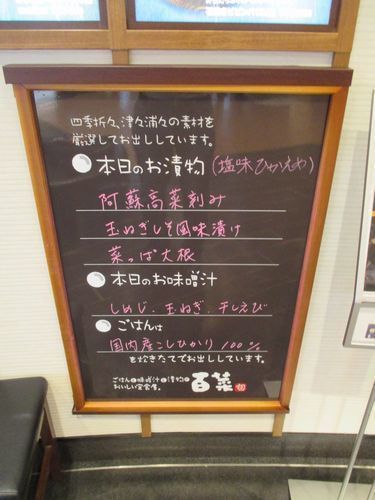 四季折々、津々浦々の素材を
厳選してお出ししています。
本日のお漬物（塩味ひかえや）
阿蘇高菜刻み
玉ねぎしそ風味漬け
菜っぱ大根
本日のお味噌汁
しめじ、玉ねぎ、干しえび
ごはんは
国内産こしひかり100%
を炊きたてでお出ししています。
ごはんと味噌汁と漬物の
おいしい定食屋。
百菜 旬